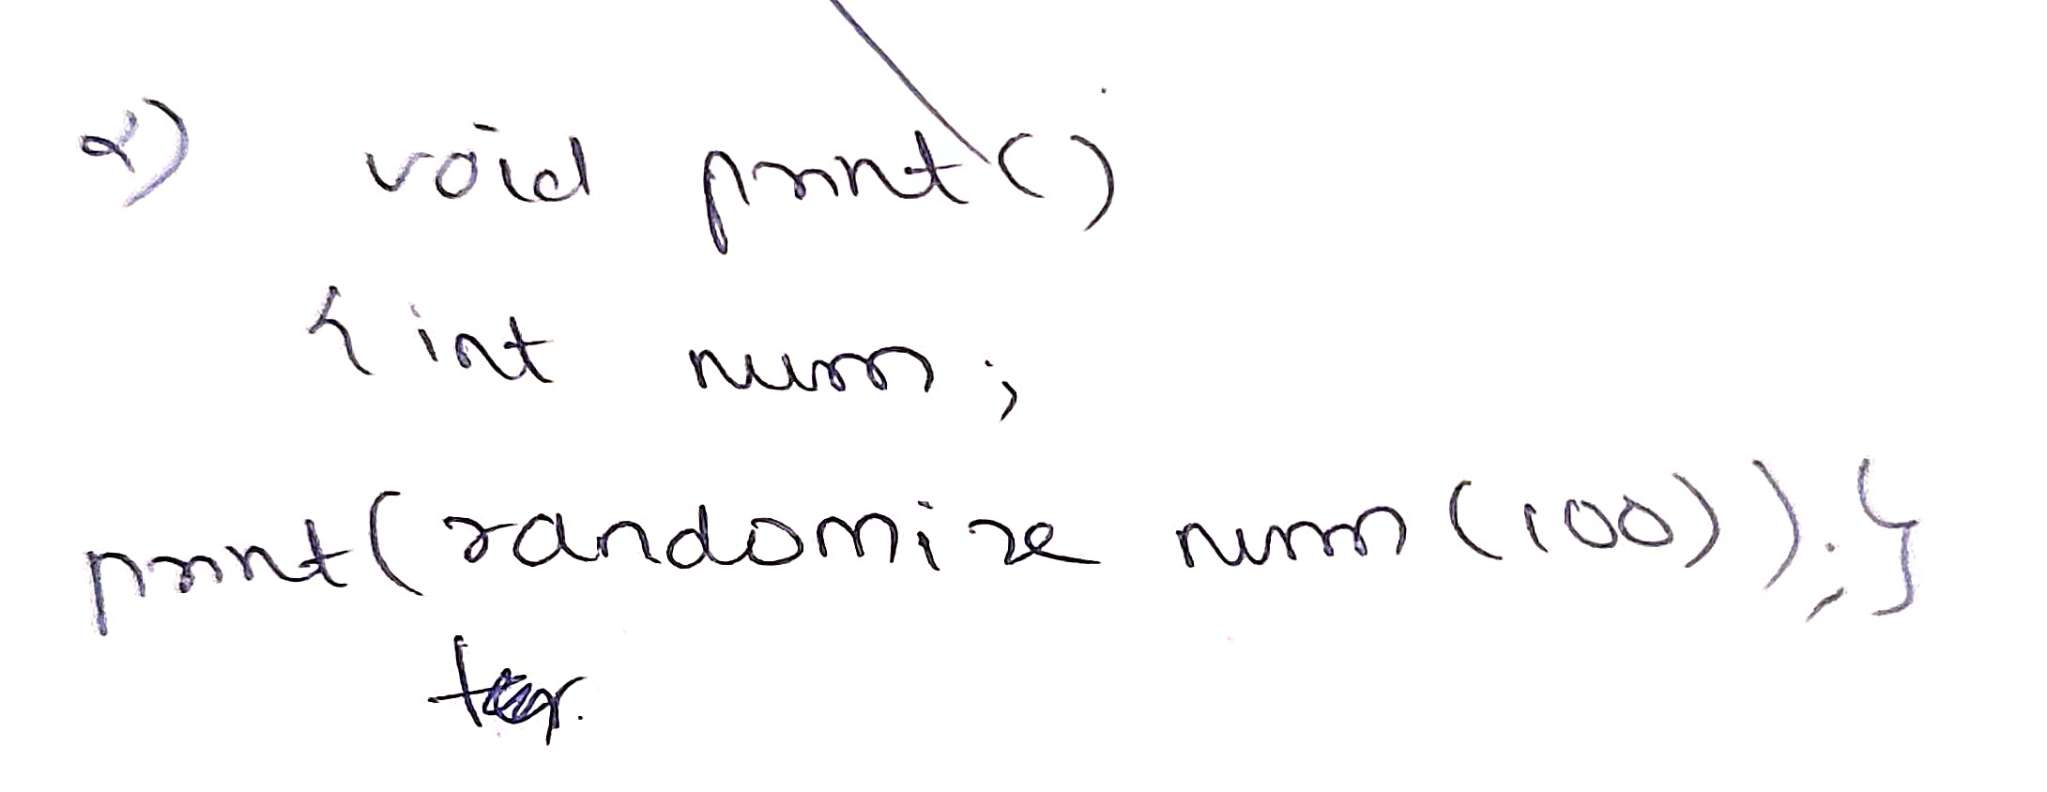 2) void print()
{ int num;
print(randomize num (100));}